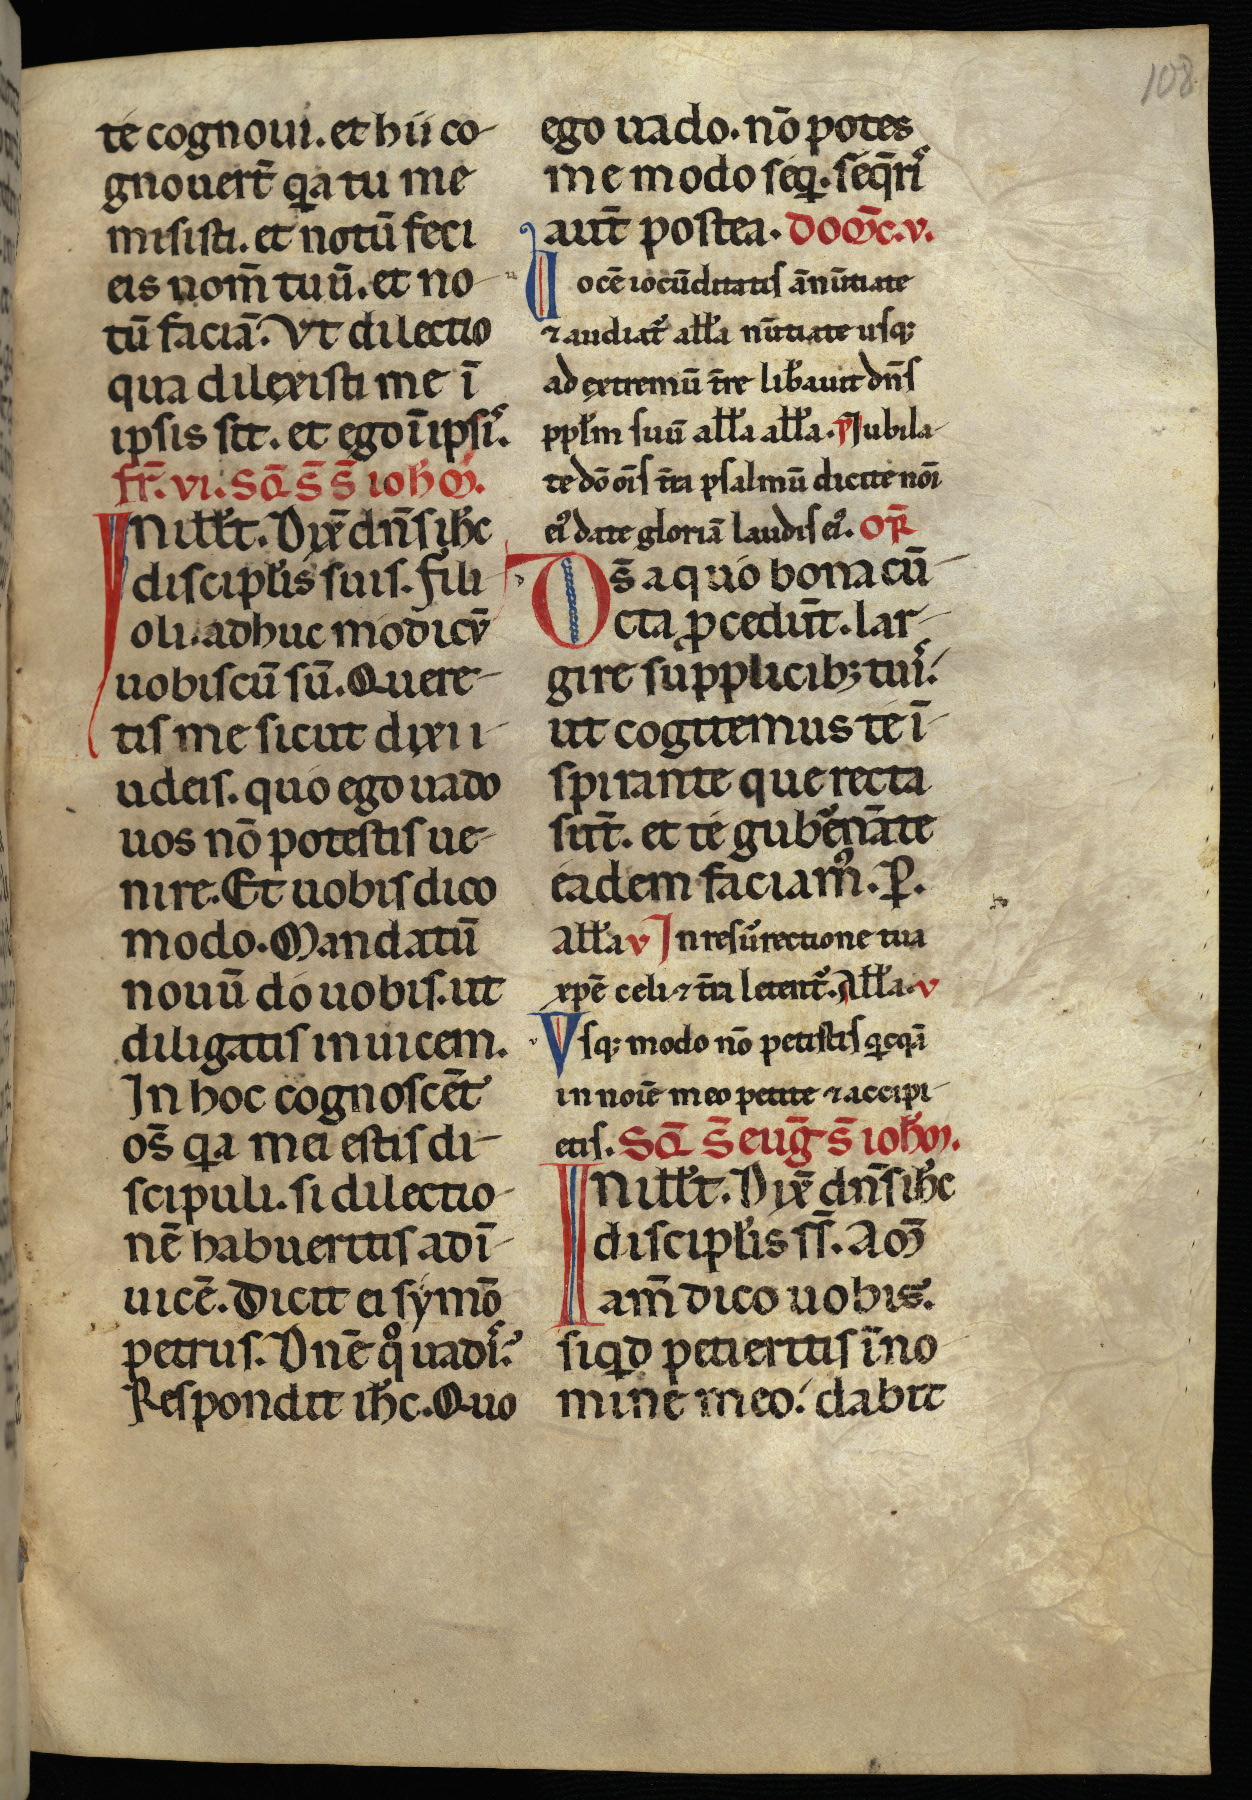 108
te cognoui. et hii co-
gnouert̄ q̇a tu me
misisti. et notū feci
eis nom̄ tuū. et no-
tū faciā. Vt dilectio
qua dilexisti me ī
ipsis sit. et ego ī ipsis.
fr̄. vi. Sq̄ s̄ s̄ ioħm.
IN ill̄t. Dix̄ dn̄s ih̄c
discipl̄is suis. Fili
oli. adhuc modicū
uobiscū sū. Quere-
tis me sicut dixi i-
udeis. quo ego uado
uos nō potestis ue-
nire. Et uobis dico
modo. Mandatū
nouū do uobis. ut
diligatis inuicem.
In hoc cognoscēt
os̄ q̇a mei estis di-
scipuli. si dilectio-
nē habueritis ad ī-
uicē. Dicit ei symō
petrus. Dn̄e q̊ uadis?
Respondit ih̄c. Quo
ego uado. nō potes
me modo seq̇. seq̄ris
aut̄ postea. Dom̄c. v.
Uocē iocūditatis ān̄utiate
⁊ audiat᷑ all̄a nūtiate usq;
ad extremū t̄re lib̄auit dn̄s
ppl̄m suū all̄a all̄a. p̄ Iubila-
te dō oīs t̄ra psalmū dicite nōi
eiꝰ date gloriā laudis eiꝰ. Or̄
Ds̄ a quo bona cū-
cta ꝓcedūt. lar-
gire supplicib; tuis.
ut cogitemus te ī-
spirante que recta
sūt. et te gub̄enāte
eadem faciamꝰ. P̱.
All̄a v In resurrectione tua
xp̄e celi ⁊ t̄ra letent᷑. All̄a. v
Vsq; modo nō petistis q̇cq̄ā
in noīe meo petite ⁊ accipi-
etis. Sq̄ s̄ eug̅ s̄ ioħm.
IN ill̄t. Dix̄ dn̄s ih̄c
discipl̄is ss̄. Am̄
am̄ dico uobis.
siq̇d petieritis ī no
mine meo. dabit